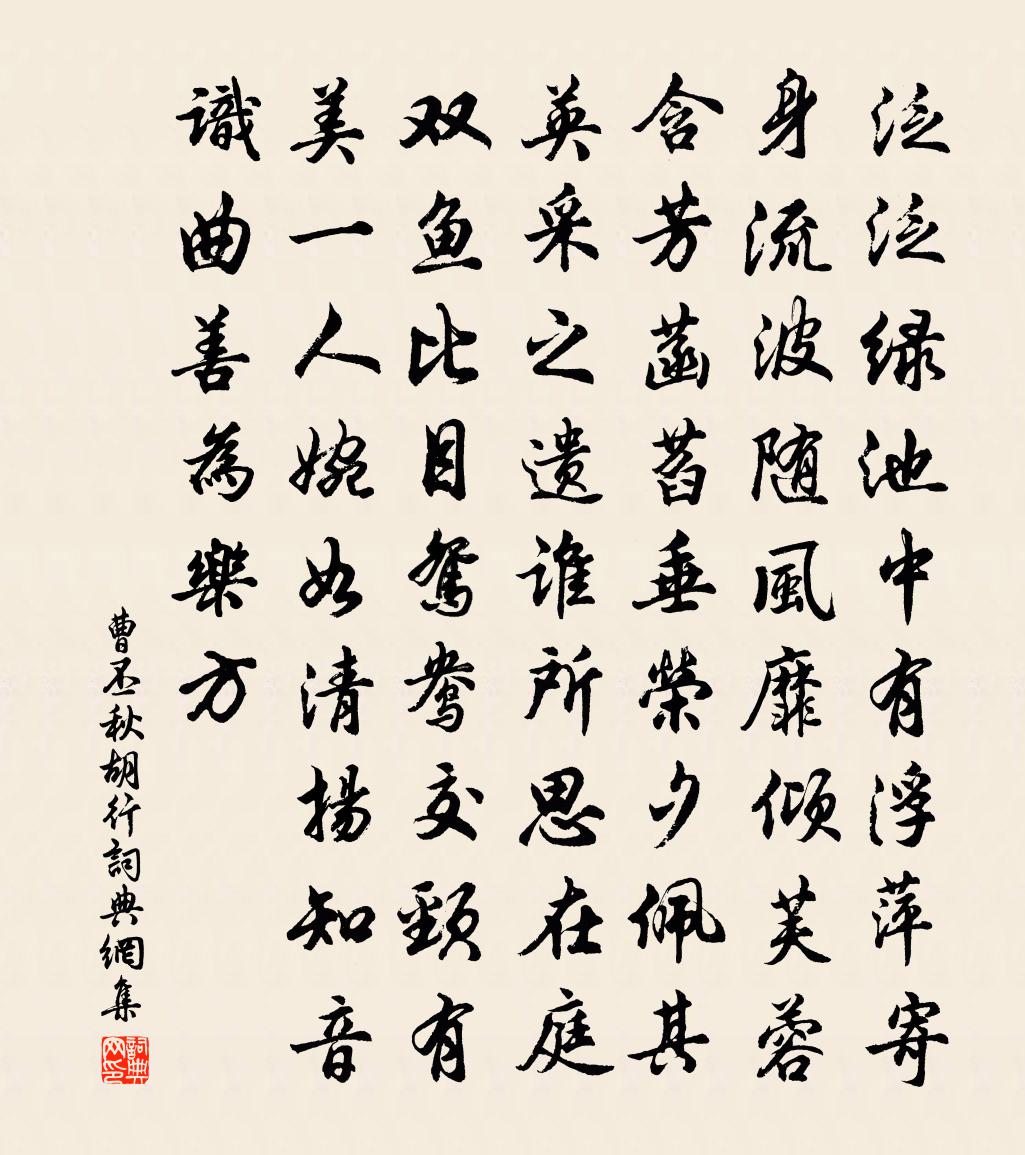 泛泛绿池中有浮萍寄
身流波随風靡傾芙蓉
含芳菡萏垂榮夕佩其
英采之遗誰所思在庭
双鱼比目鴛鸯交頸有
美一人婉如清揚知音
識曲善為樂方
曹丕秋胡行詞典網集
詞典
网印